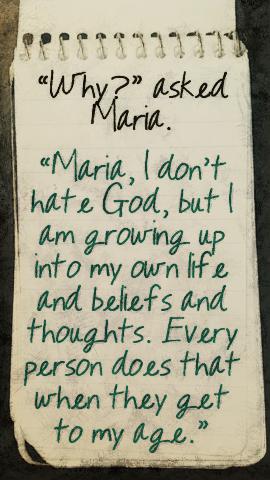 “Why?” asked
Maria.
“Maria, I don't
hate God, but I
am growing up
into my own life
and beliefs and
thoughts. Every
person does that
when they get
to my age.”